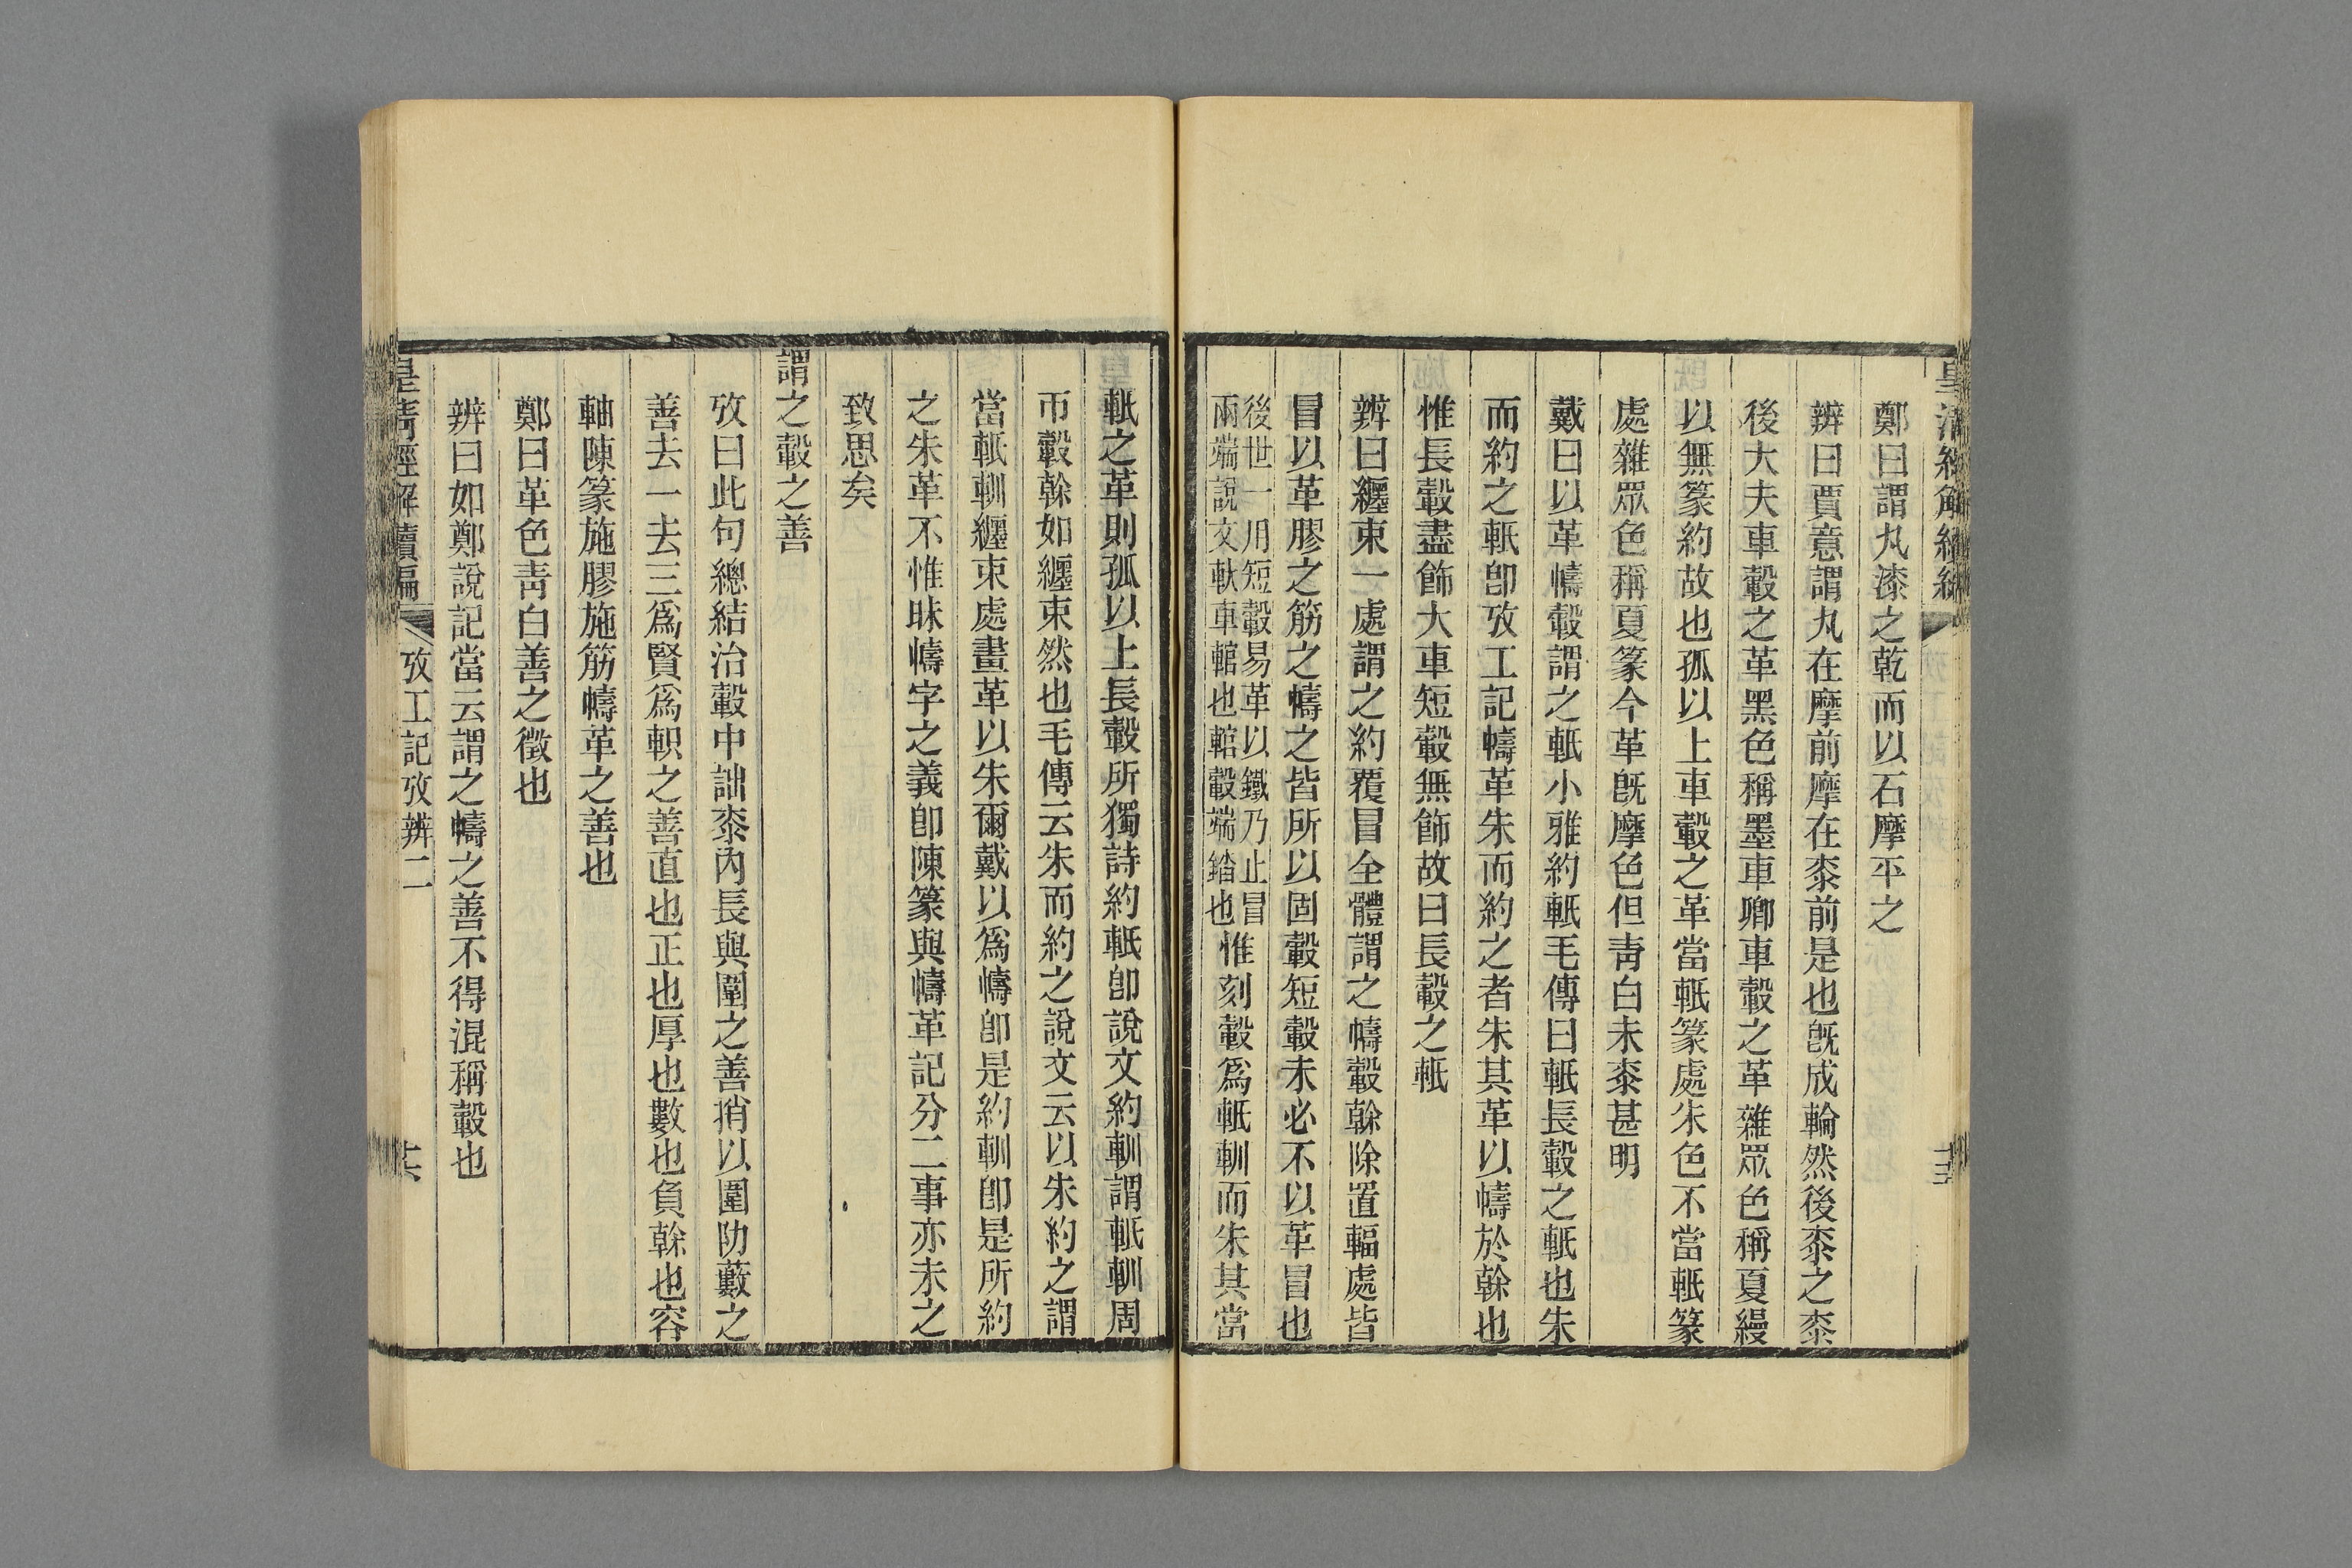 鄭曰謂丸漆之乾而以石摩平之
辨曰賈意謂丸在摩前摩在桼前是也旣成輪然後桼之桼
後大夫車轂之革黑色稱墨車卿車轂之革雜眾色稱夏縵
以無篆約故也孤以上車轂之革當軝篆處朱色不當軝篆
處雜眾色稱夏篆今革旣摩色但靑白未桼甚明
戴曰以革幬轂謂之軝小雅約軝毛傳曰軝長轂之軝也朱
而約之軝卽攷工記幬革朱而約之者朱其革以幬於榦也
惟長轂盡飾大車短轂無飾故曰長轂之軝
辨曰纏束一處謂之約覆冒全體謂之幬轂榦除置輻處皆
冒以革膠之筋之幬之皆所以固轂短轂未必不以革冒也
後世一用短轂易革以鐵乃止冒
兩端說文軑車輨也輨轂端錔也
惟刻轂爲軝軕而朱其當
軝之革則孤以上長轂所獨詩約軝卽說文約軕謂軝軕周
帀轂榦如纏束然也毛傳云朱而約之說文云以朱約之謂
當軝軕纏束處畫革以朱爾戴以爲幬卽是約軕卽是所約
之朱革不惟昧幬字之義卽陳篆與幬革記分二事亦未之
致思矣
謂之轂之善
攷曰此句總結治轂中詘桼內長與圍之善捎以圍阞藪之
善去一去三爲賢爲軹之善直也正也厚也數也負榦也容
軸陳篆施膠施筋幬革之善也
鄭曰革色靑白善之徵也
辨曰如鄭說記當云謂之幬之善不得混稱轂也
皇清經解續編
攷工記攷辨二